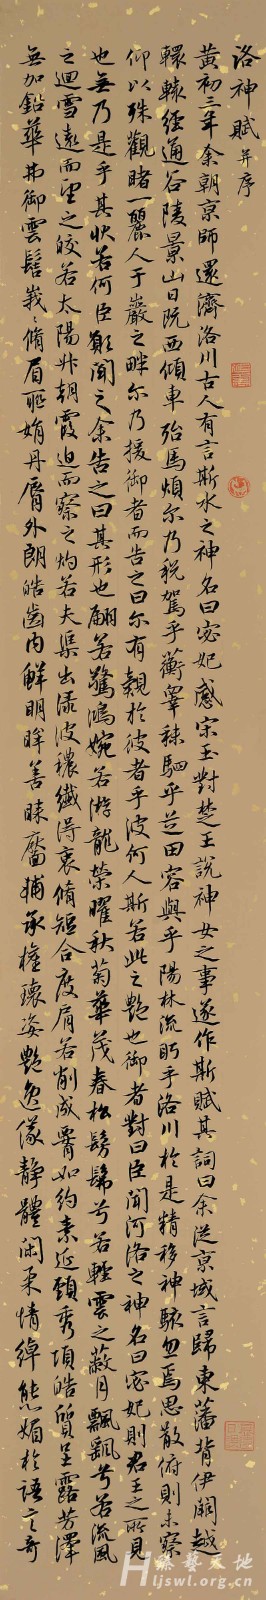 洛神賦 并序
黃初三年余朝京師還濟洛川古人有言斯水之神名曰宓妃感宋玉對楚王說神女之事遂作斯賦其詞曰余從京域言歸東藩背伊闕越
轘轅經通谷陵景山日既西傾車殆馬煩爾乃稅駕乎蘅皋秣駟乎芝田容與乎陽林流眄乎洛川於是精移神駭忽焉思散俯則未察
仰以殊觀睹一麗人于巖之畔爾乃援御者而告之曰爾有覿於彼者乎彼何人斯若此之艷也御者對曰臣聞河洛之神名曰宓妃則君王之所見
也無乃是乎其狀若何臣願聞之余告之曰其形也翩若驚鴻婉若游龍榮曜秋菊華茂春松髣髴兮若輕雲之蔽月飄颻兮若流風
之迴雪遠而望之皎若太陽升朝霞迫而察之灼若夫渠出渌波穠纖得衷脩短合度肩若削成腰如約素延頸秀項皓質呈露芳澤
無加鉛華弗御雲髻峩〻脩眉聯娟丹脣外朗皓齒內鮮明眸善睞靨輔承權瓌姿艷逸儀靜體閑柔情綽態媚於語言奇
藝天地
ljswl.org.cn